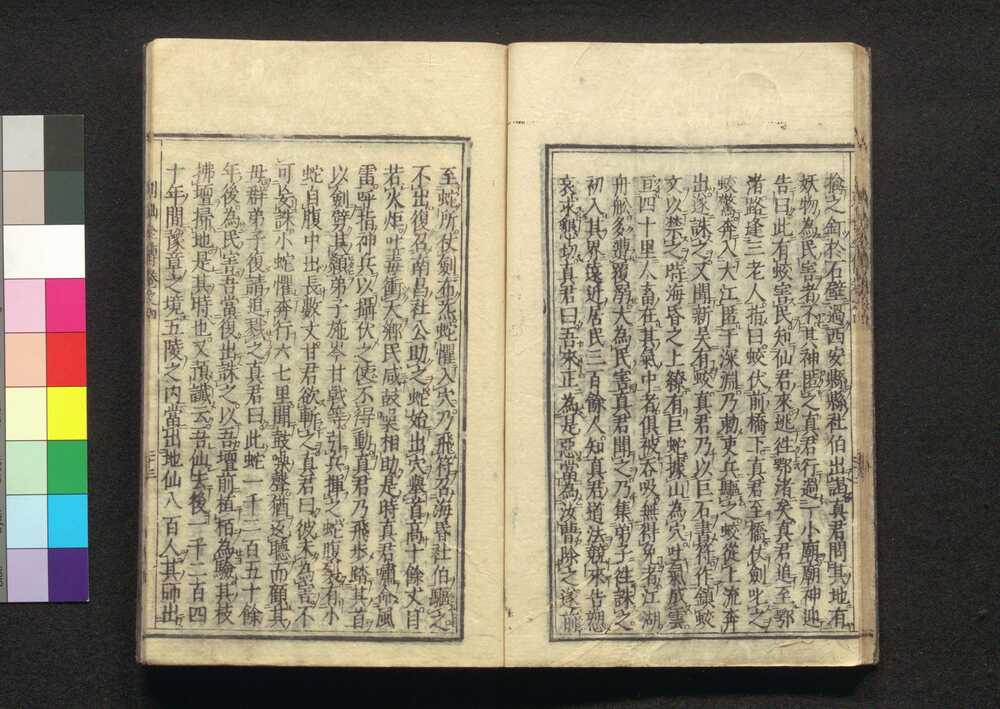 擒之釘於石壁過西安縣縣社伯出謁真君問其地有
妖物為民害者不其神匿之真君行過一小廟廟神迎
告曰此有蛟害民知仙君來逃往鄂渚矣真君追至鄂
渚路逢三老人指曰蛟伏前橋下真君至橋仗劍叱之
蛟驚奔入大江匿于深淵乃勅吏兵驅之蛟從上流奔
出遂誅之又聞新吳有蛟真君乃以巨石書符作鎮蛟
文以禁之時海昏之上繚有巨蛇據山為穴吐氣成雲
亘四十里人畜在其氣中者俱被吞吸無得免者江湖
舟舩多遭覆溺大為民害真君聞之乃集弟子往誅之
初入其界遠近居民三百餘人知真君道法競來告愬
哀求懇切真君曰吾來正為是惡當為汝曹除之遂前
至蛇所仗劍布炁蛇懼入穴乃飛符召海昏社伯驅之
不出復召南昌社公助之蛇始出穴舉首高十餘丈目
若火炬吐毒衝天鄉民咸鼓噪相助是時真君嘯命風
雷呼指神兵以攝伏之使不得動真君乃飛步踏其首
以劍劈其顙弟子施岑甘戰等引兵揮之蛇腹裂有小
蛇自腹中出長數丈甘君欲斬之真君曰彼未為害不
可妄誅小蛇懼奔行六七里聞鼓噪聲猶返聽而顧其
母群弟子復請追戮之真君曰此蛇一千二百五十餘
年後為民害吾當復出誅之以吾壇前植栢為驗其枝
拂壇掃地是其時也又預讖云吾仙去後一千二百四
十年間豫章之境五陵之内當出地仙八百人其師出